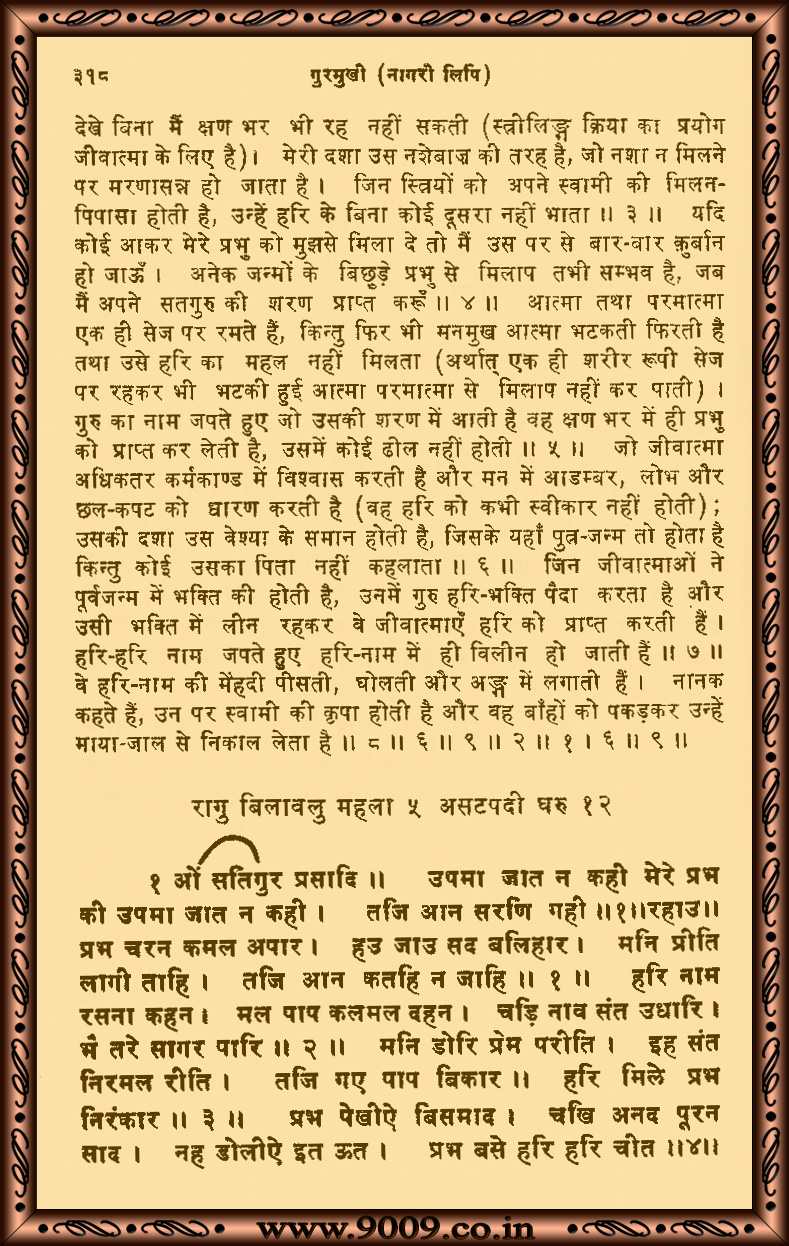 ३१८ गुरमुखी (नागरी लिपि)
देखे बिना मैं क्षण भर भी रह नहीं सकती (स्त्रीलिङ्ग क्रिया का प्रयोग
जीवात्मा के लिए है)। मेरी दशा उस नशेबाज़ की तरह है, जो नशा न मिलने
पर मरणासन्न हो जाता है । जिन स्त्रियों को अपने स्वामी को मिलन-
पिपासा होती है, उन्हें हरि के बिना कोई दूसरा नहीं भाता ॥ ३ ॥ यदि
कोई आकर मेरे प्रभु को मुझसे मिला दे तो मैं उस पर से बार-बार क़ुर्बान
हो जाऊँ । अनेक जन्मों के बिछुड़े प्रभु से मिलाप तभी सम्भव है, जब
मैं अपने सतगुरु की शरण प्राप्त करूँ ॥ ४ ॥ आत्मा तथा परमात्मा
एक ही सेज पर रमते हैं, किन्तु फिर भी मनमुख आत्मा भटकती फिरती है
तथा उसे हरि का महल नहीं मिलता (अर्थात् एक ही शरीर रूपी सेज
पर रहकर भी भटकी हुई आत्मा परमात्मा से मिलाप नहीं कर पाती) ।
गुरु का नाम जपते हुए जो उसकी शरण में आती है वह क्षण भर में ही प्रभु
को प्राप्त कर लेती है, उसमें कोई ढील नहीं होती ॥ ५ ॥ जो जीवात्मा
अधिकतर कर्मकाण्ड में विश्वास करती है और मन में आडम्बर, लोभ और
छल-कपट को धारण करती है (वह हरि को कभी स्वीकार नहीं होती) ;
उसकी दशा उस वेश्या के समान होती है, जिसके यहाँ पुत्र-जन्म तो होता है
किन्तु कोई उसका पिता नहीं कहलाता ॥ ६ ॥ जिन जीवात्माओं ने
पूर्वजन्म में भक्ति की होती है, उनमें गुरु हरि-भक्ति पैदा करता है और
उसी भक्ति में लीन रहकर वे जीवात्माएँ हरि को प्राप्त करती हैं ।
हरि-हरि नाम जपते हुए हरि-नाम में ही विलीन हो जाती हैं ॥ ७ ॥
वे हरि-नाम की मेंहदी पीसती, घोलती और अङ्ग में लगाती हैं । नानक
कहते हैं, उन पर स्वामी की कृपा होती है और वह बाँहों को पकड़कर उन्हें
माया-जाल से निकाल लेता है ॥ ८ ॥ ६ ॥ ९ ॥ २ ॥ १ । ६ ॥ ९ ॥
रागु बिलावलु महला ५ असटपदी घरु १२
१ ओं सतिगुर प्रसादि ॥ उपमा जात न कही मेरे प्रभ
की उपमा जात न कही । तजि आन सरणि गही ॥१॥रहाउ॥
प्रभ चरन कमल अपार । हउ जाउ सद बलिहार । मनि प्रीति
लागी ताहि । तजि आन कतहि न जाहि ॥ १ ॥ हरि नाम
रसना कहन । मल पाप कलमल दहन । चड़ि नाव संत उधारि ।
भै तरे सागर पारि ॥ २ ॥ मनि डोरि प्रेम परीति । इह संत
निरमल रीति । तजि गए पाप बिकार ॥ हरि मिले प्रभ
निरंकार ॥ ३ ॥ प्रभ पेखीऐ बिसमाद । चखि अनद पूरन
साद । नह डोलीऐ इत ऊत । प्रभ बसे हरि हरि चीत ॥४॥
www.9009.co.in